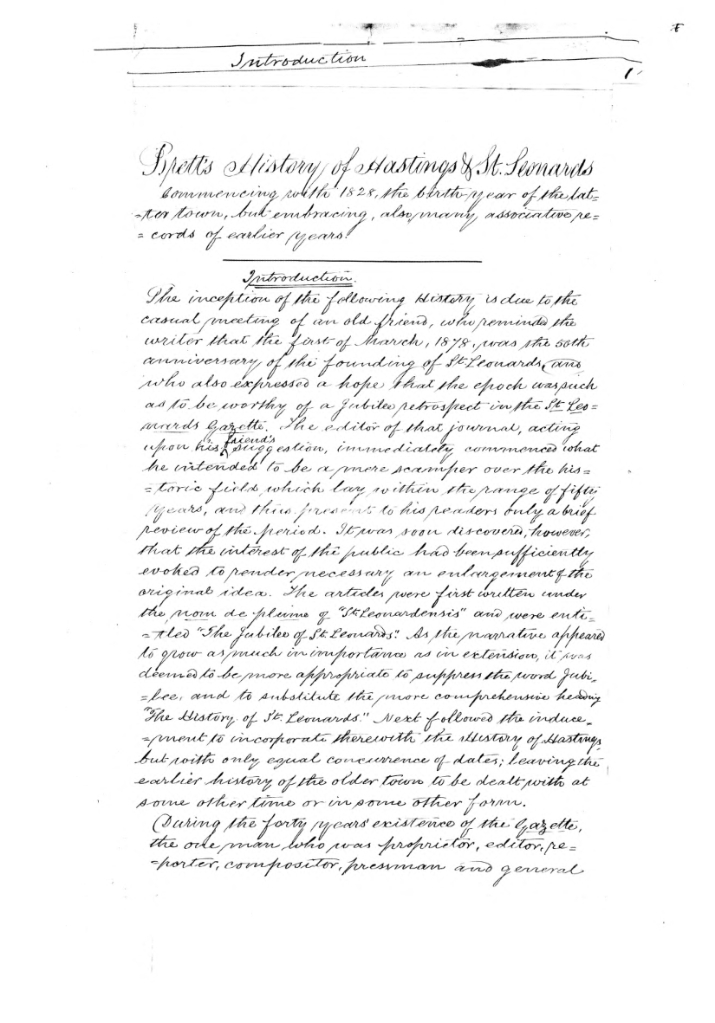 Introduction
1
Brett's History of Hastings & St. Leonards
Commencing with 1828, the birth-year of the lat=
=ter town, but embracing, also, many associative re=
= cords of earlier years.
Introduction.
The inception of the following History is due to the
casual meeting of an old friend, who reminded the
writer that the first of March, 1878, was the 50th
anniversary of the founding of St. Leonards, and
who also expressed a hope that the epoch was such
as to be worthy of a Jubilee retrospect in the St. Leo=
=nards Gazette. The editor of that journal, acting
upon his friend's suggestion, immediately commenced what
he intended to be a mere scamper over the his=
=toric field which lay within the range of fifty
years, and thus present to his readers only a brief
review of the period. It was soon discovered, however,
that the interest of the public had been sufficiently
evoked to render necessary an enlargement of the
original idea. The articles were first written under
the nom de plume of "St. Leonardensis" and were enti=
=tled "The Jubilee of St. Leonards." As the narrative appeared
to grow as much in importance as in extension, it was
deemed to be more appropriate to suppress the word Jubi=
=lee, and to substitute the more comprehensive heading
"The History of St. Leonards." Next followed the induce=
=ment to incorporate therewith the History of Hastings,
but with only equal concurrence of dates; leaving the
earlier history of the older town to be dealt with at
some other time or in some other form.
(During the forty years' existence of the Gazette,
the one man who was proprietor, editor, re=
=porter, compositor, pressman and general